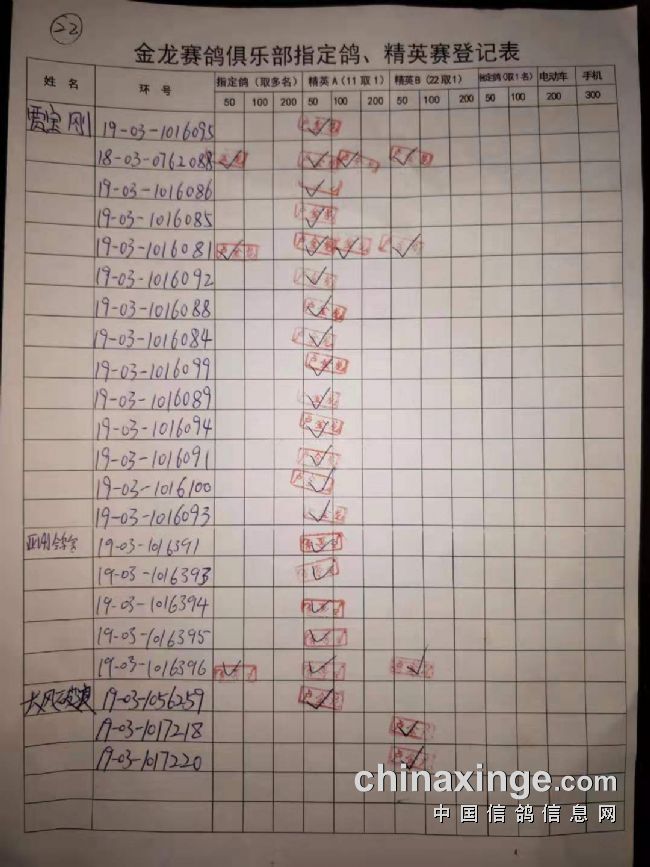 22
金龙赛鸽俱乐部指定鸽、精英赛登记表
姓名 环号 指定鸽(取多名) 精英A(11取1) 精英B(22取1) 指定鸽(取1名) 电动车 手机
50 100 200 50 100 200 50 100 200 50 100 200 200 300
贾宝刚 19-03-1016095
18-03-0762088
19-03-1016086
19-03-1016085
19-03-1016081
19-03-1016092
19-03-1016088
19-03-1016084
19-03-1016099
19-03-1016089
19-03-1016094
19-03-1016091
19-03-1016100
19-03-1016093
19-03-1016391
19-03-1016393
19-03-1016394
19-03-1016395
19-03-1016396
19-03-1056259
19-03-1017218
19-03-1017220
chinaxinge.com
中国信鸽信息网